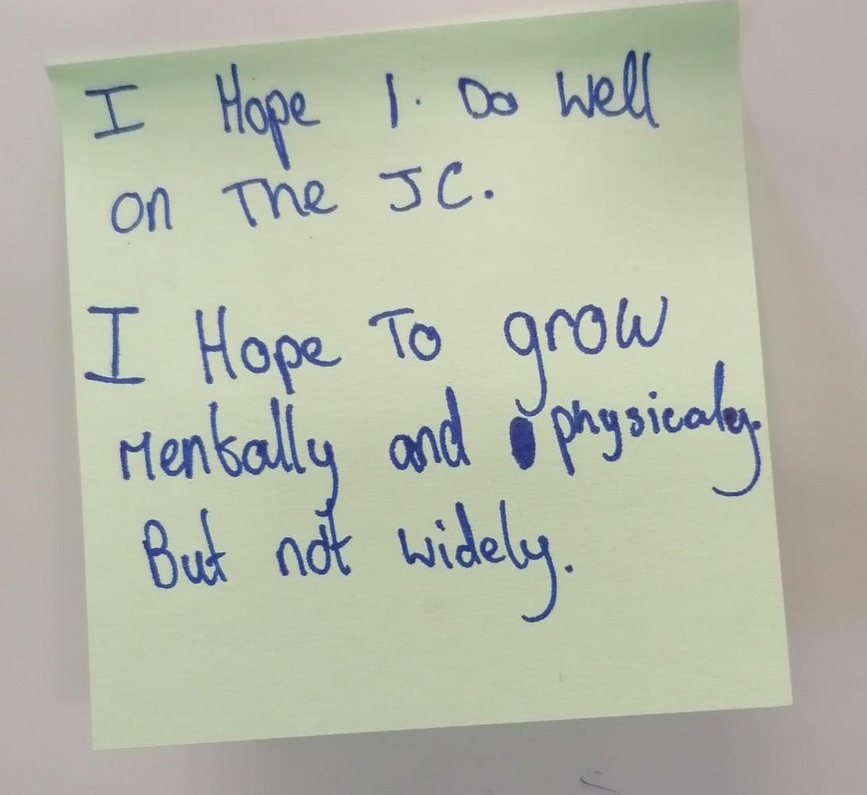 I Hope I. Do Well
on The JC.
I Hope To grow
Mentally and physicaly.
But not widely.